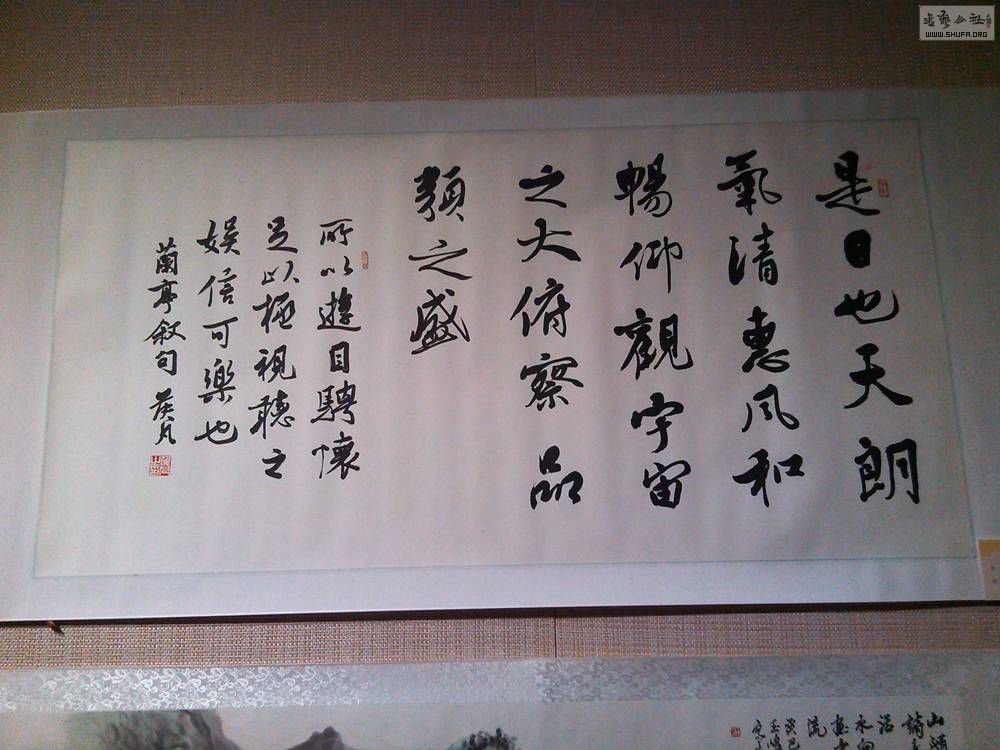 是日也天朗
氣清惠風和
暢仰觀宇宙
之大俯察品
類之盛
所以遊目騁懷
足以極視聽之
娛信可樂也
蘭亭敘句
WWW.SHUFA.ORG